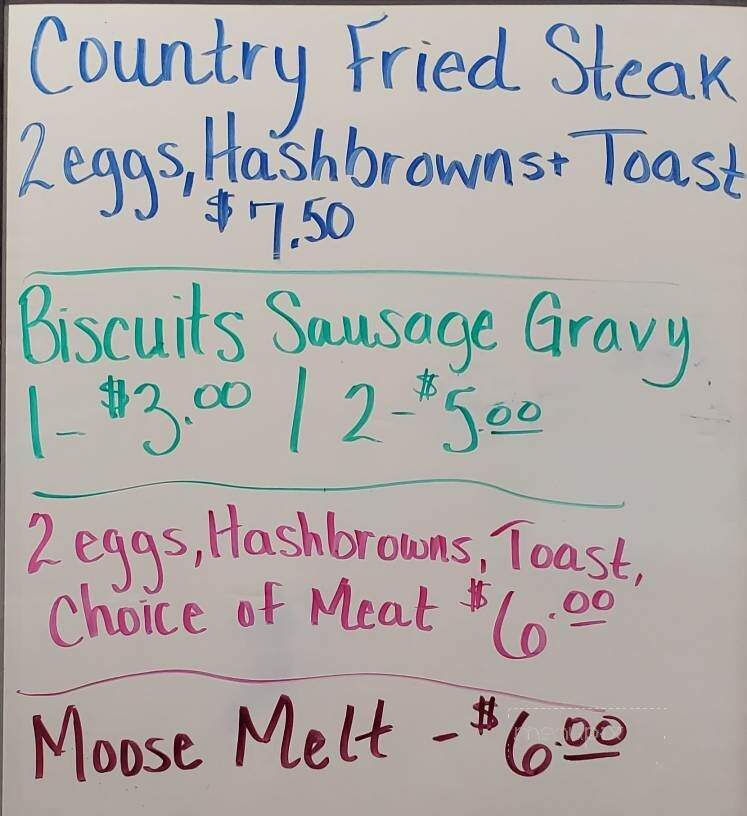 Country Fried Steak
2 eggs, Hashbrowns + Toast
$7.50
Biscuits Sausage Gravy
1 - $3.00 / 2 - $5.00
2 eggs, Hashbrowns, Toast,
Choice of Meat $6.00
Moose Melt - $6.00